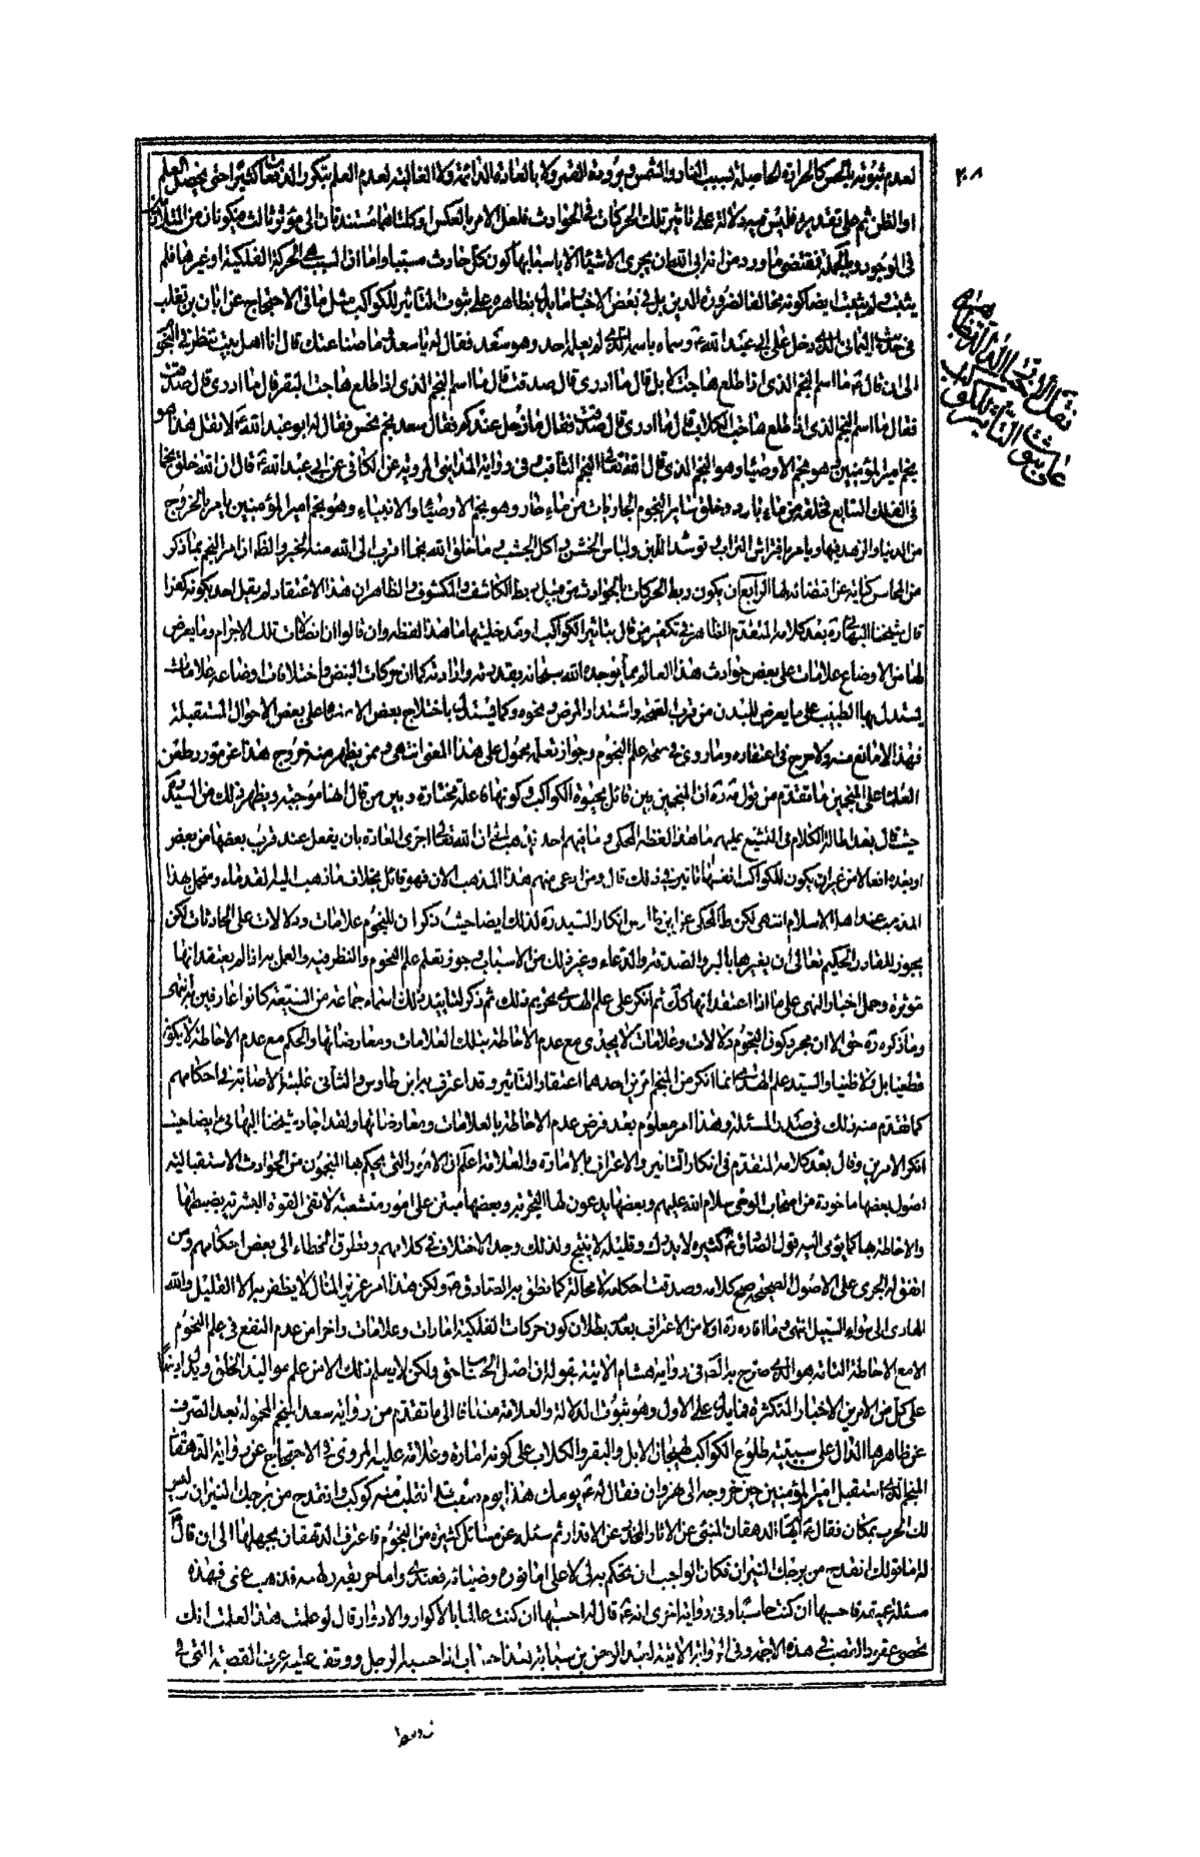 ٢٠٨
لعدم ثبوته بالحس كالحرارة الحاصلة بسبب النار والشمس وبرودة القمر ولا بالعادة الدائمة ولا الغالبة لعدم العلم بتكرر الدفعات كثيرا حتى يحصل العلم
او الظن ثم على تقديره فليس فيه دلالة على تاثير تلك الحركات في الحوادث فلعل الامر بالعكس او كلتاهما مستندتان الى مؤثر ثالث فيكونان من المتلازمين
في الوجود وبالجملة فمقتضى ما ورد من انه ابى الله ان يجرى الاشياء الا باسبابها كون كل حادث مسببا واما ان السبب هي الحركة الفلكية او غيرها فلم
يثبت ولم يثبت ايضا كونه مخالفا لضرورة الدين بل في بعض الاخبار ما يدل بظاهره على ثبوت التاثير للكواكب مثل ما في الاحتجاج عن ابان بن تغلب
في حديث اليماني الذي دخل على ابي عبد الله ع وسماه باسمه الذي لم يعلمه احد وهو سعد فقال له يا سعد ما صناعتك قال انا اهل بيت ننظر في النجوم
الى ان قال ع ما اسم النجم الذي اذا طلع هاجت الابل قال ما ادري قال صدقت قال ما اسم النجم الذي اذا طلع هاجت البقر قال ما ادري قال صدقت
فقال ما اسم النجم الذي اذا طلع هاجت الكلاب قال ما ادري قال صدقت فقال ما زحل عندكم فقال سعد نجم نحس فقال له ابو عبد الله ع لا تقل هذا هو
نجم امير المؤمنين ع وهو نجم الاوصياء وهو النجم الذي قال الله تعالى النجم الثاقب وفي رواية المدائني المروية عن الكافي عن ابي عبد الله ع قال ان الله خلق نجما
في الفلك السابع فخلقه من ماء بارد وخلق سائر النجوم الجاريات من ماء حار وهو نجم الاوصياء والانبياء وهو نجم امير المؤمنين يامر بالخروج
من الدنيا والزهد فيها ويامر بافتراش التراب وتوسد اللبن ولباس الخشن واكل الجشب وما خلق الله نجما اقرب الى الله منه الخبر والظ ان امر النجم بما ذكر
من المحاسن كناية عن اقتضائه لها الرابع ان يكون ربط الحركات بالحوادث من قبيل ربط الكاشف والمكشوف والظاهر ان هذا الاعتقاد لم يقل احد بكونه كفرا
قال شيخنا البهائي ره بعد كلامه المتقدم الظاهر في تكفير من قال بتاثير الكواكب او مدخليتها ما هذا لفظه وان قالوا ان اتصالات تلك الاجرام وما يعرض
لها من الاوضاع علامات على بعض حوادث هذا العالم مما يوجده الله سبحانه بقدرته وارادته كما ان حركات النبض واختلافات اوضاعه علامات
يستدل بها الطبيب على ما يعرض للبدن من قرب الصحة واشتداد المرض ونحوه وكما يستدل باختلاج بعض الاعضاء على بعض الاحوال المستقبلة
فهذا لا مانع منه ولا حرج في اعتقاده وما روي في صحة علم النجوم وجواز تعلمه محمول على هذا المعنى انتهى وممن يظهر منه خروج هذا عن مورد طعن
العلماء على المنجمين ما تقدم من قول مة ره ان المنجمين بين قائل بحيوة الكواكب وكونها فاعلة مختارة وبين من قال انها موجبة ويظهر ذلك من السيد
حيث قال بعد اطالة الكلام في التشنيع عليهم ما هذا لفظه المحكي وما فيهم احد يذهب الى ان الله تعالى اجرى العادة بان يفعل عند قرب بعضها من بعض
او بعده افعالا من غير ان يكون للكواكب انفسها تاثير في ذلك قال ومن ادعى منهم هذا المذهب الان فهو قائل بخلاف ما ذهب اليه القدماء ومتجمل بهذا
المذهب عند اهل الاسلام انتهى لكن ظ المحكي عن ابن طاوس انكار السيد ره لذلك ايضا حيث ذكر ان للنجوم علامات ودلالات على الحادثات لكن
يجوز للقادر الحكيم تعالى ان يغيرها بالبر والصدقة والدعاء وغير ذلك من الاسباب وجوز تعلم علم النجوم والنظر فيه والعمل به اذا لم يعتقد انها
مؤثرة وحمل اخبار النهي على ما اذا اعتقد انها كذلك ثم انكر على علم الهدى تحريم ذلك ثم ذكر لتاييد ذلك اسماء جماعة من الشيعة كانوا عارفين به انتهى
وما ذكره ره حق الا ان مجرد كون النجوم دلالات وعلامات لا يجدي مع عدم الاحاطة بتلك العلامات ومعارضاتها والحكم مع عدم الاحاطة لا يكون
قطعيا بل ولا ظنيا والسيد علم الهدى انما انكر من المنجم امرين احدهما اعتقاد التاثير وقد اعترف به ابن طاوس والثاني غلبة الاصابة في احكامهم
كما تقدم منه ذلك في صدر المسئلة وهذا امر معلوم بعد فرض عدم الاحاطة بالعلامات ومعارضاتها ولقد اجاد شيخنا البهائي ايضا حيث
انكر الامرين وقال بعد كلامه المتقدم في انكار التاثير والاعتراف بالامارة والعلامة اعلم ان الامور التي يحكم بها المنجمون من الحوادث الاستقبالية
اصول بعضها ماخوذة من اصحاب الوحي سلام الله عليهم وبعضها يدعون لها التجربة وبعضها مبتن على امور متشعبة لا تفي القوة البشرية بضبطها
والاحاطة بها كما يومي اليه قول الصادق ع كثيره لا يدرك وقليله لا ينتج ولذلك وجد الاختلاف في كلامهم وتطرق الخطاء الى بعض احكامهم ومن
اتفق له الجري على الاصول الصحيحة صح كلامه وصدقت احكامه لا محالة كما نطق به الصادق ع ولكن هذا امر عزيز المنال لا يظفر به الا القليل والله
الهادي الى سواء السبيل انتهى وما افاده ره اولا من الاعتراف بعدم بطلان كون حركات الفلكية امارات وعلامات واخرا من عدم النفع في علم النجوم
الا مع الاحاطة التامة هو الذي صرح به الصادق ع في رواية هشام الاتية بقوله ان اصل الحساب حق ولكن لا يعلم ذلك الا من علم مواليد الخلق ويدل ايضا
على كل من الامرين الاخبار المتكثرة فما يدل على الاول وهو ثبوت الدلالة والعلامة مضافا الى ما تقدم من رواية سعد المنجم المحمولة بعد الصرف
عن ظاهرها الدال على سببية طلوع الكواكب لهيجان الابل والبقر والكلاب على كونه امارة وعلامة عليه المروي في الاحتجاج عن رواية الدهقان
المنجم الذي استقبل امير المؤمنين حين خروجه الى نهروان فقال له ع يومك هذا يوم صعب قد انقلب منه كوكب وانقدح من برجك النيران وليس
لك الحرب بمكان فقال ع له ايها الدهقان المنبئ عن الاثار المحذر عن الاقدار ثم سئله عن مسائل كثيرة من النجوم فاعترف الدهقان بجهلها الى ان قال ع
له اما قولك انقدح من برجك النيران فكان الواجب ان تحكم به لي لا علي اما نوره وضياؤه فعندي واما حريقه ولهبه فذهب عني فهذه
مسئلة عميقة فاحسبها ان كنت حاسبا وفي رواية اخرى انه ع قال له احسبها ان كنت عالما بالاكوار والادوار قال لو علمت هذا لعلمت انك
تحصي عقود القصب في هذه الاجمة وفي الرواية الاتية لعبد الرحمن بن سيابة هذا حساب اذا حسبه الرجل ووقف عليه عرف القصبة التي في
نقل الاخبار الدالة بظاهرها
على ثبوت التاثير للكواكب